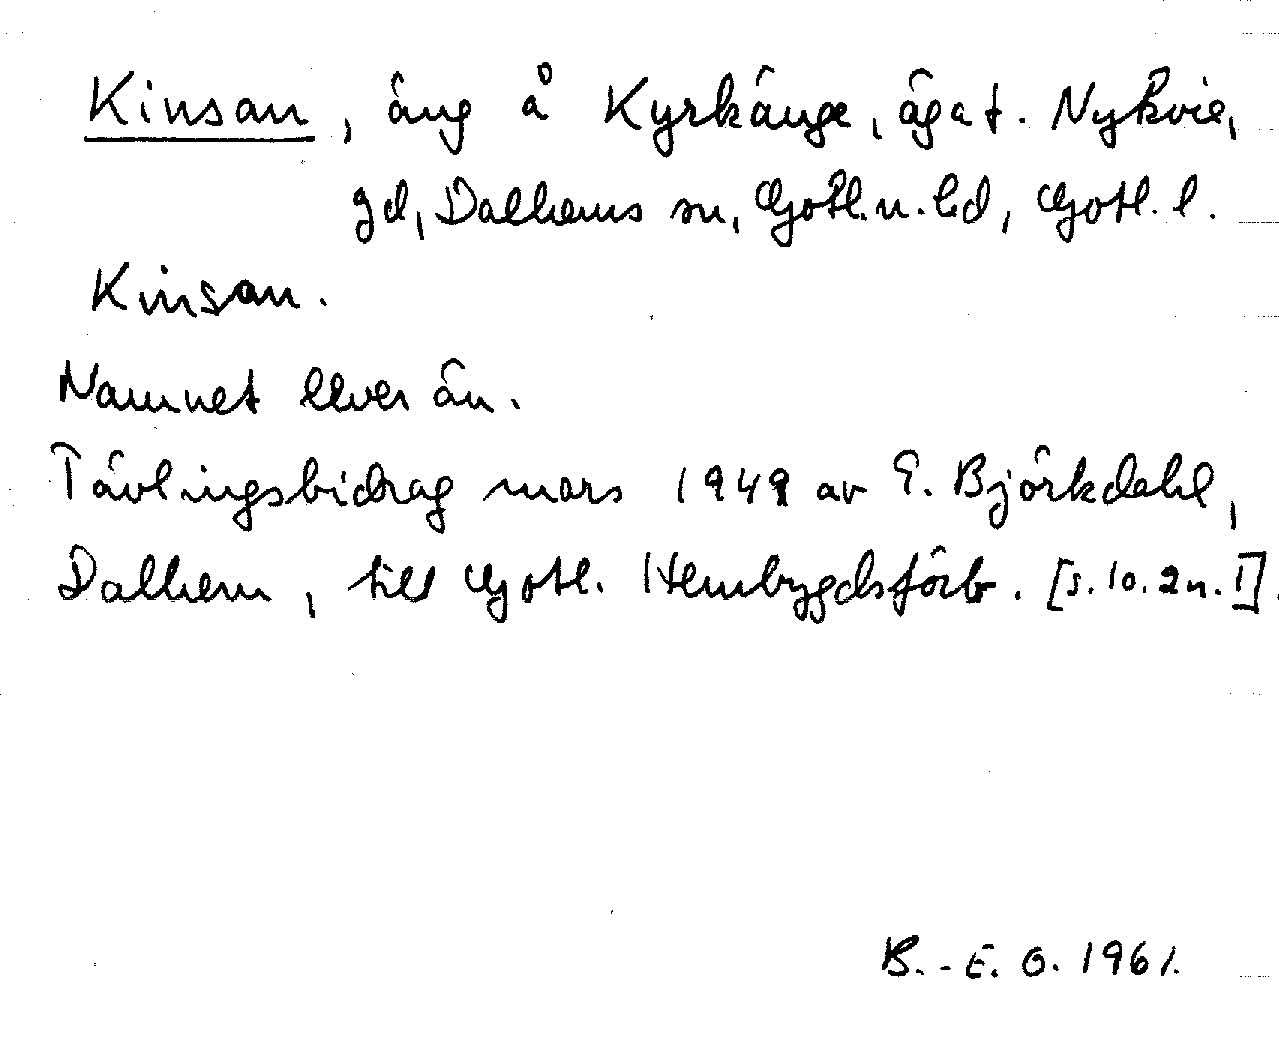 Kinsan, äng å Kyrkänge, äga t. Nykvie,
gd, Dalhems sn, Gotl. n. hd, Gotl. l.
Kinsan.
Namnet lever än.
Tävlingsbidrag mars 1949 av E. Björkdahl,
Dalhem, till Gotl. Hembygdsförb. [s. 10. 2 n. I].
B.-E. O. 1961.